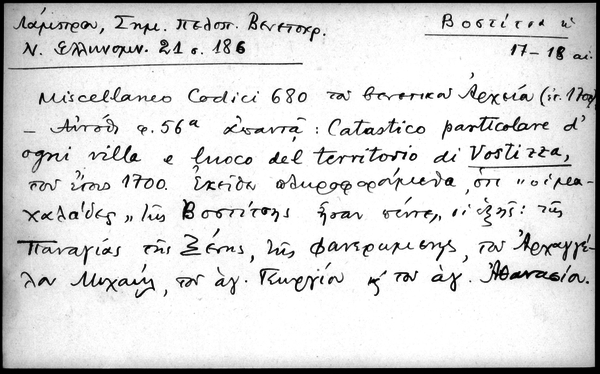 Λάμπρου, Σημ. Πελοπ. Βενετοκρ.
Βοστίτσα
Ν. Ελληνομν. 21 σ. 186
17-18 αι.
Miscellaneo Codici 680 του βενετικού Αρχεία (ετ. 1700)
- Αυτόθι φ. 56α απαντά: Catastico particolare d'
ogni villa e luoco del territorio di Vostizza,
του έτους 1700. Εκείθεν πληροφορούμεθα, ότι "οι μα-
χαλάδες" της Βοστίτσης ήσαν πέντε, οι εξής: της
Παναγίας της Ξένης, της Φανερωμένης, του Αρχαγγέ-
λου Μιχαήλ, του άγ. Γεωργίου κ του άγ. Αθανασίου.